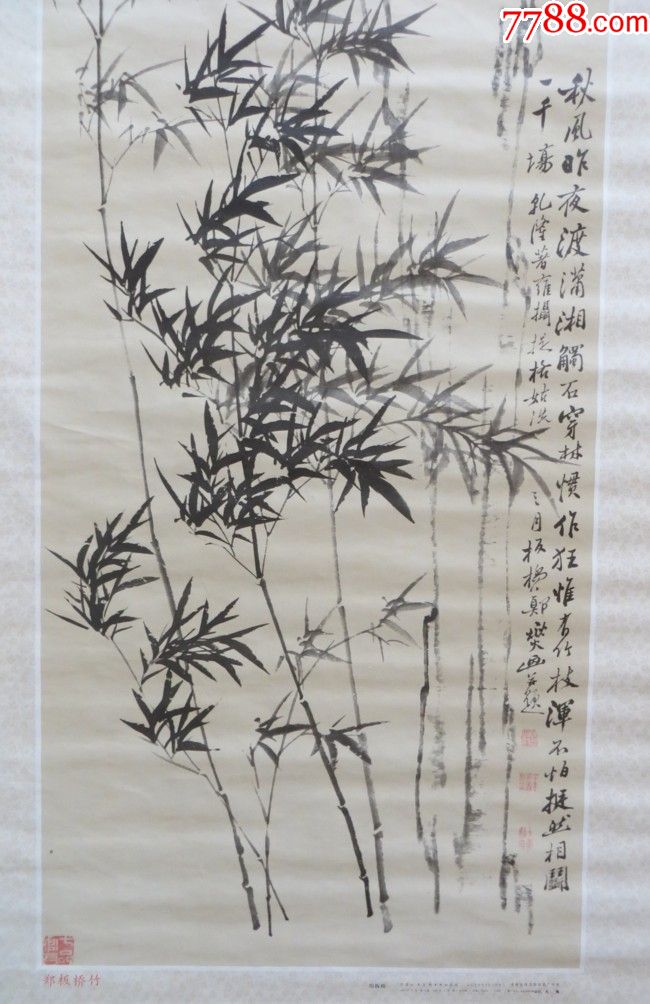 7788.com
秋風昨夜渡瀟湘觸石穿林慣作狂惟有竹枝渾不怕挺然相鬪
一千場 乾隆著雍攝提格姑洗
之月板橋鄭燮畫并題
郑板桥竹